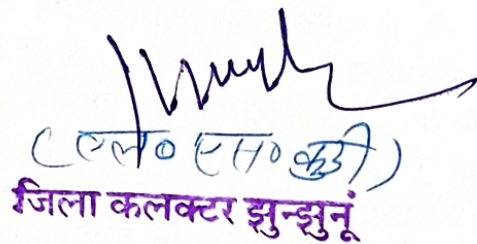 (एल० एस० कुड़ी)
जिला कलक्टर झुन्झुनूं